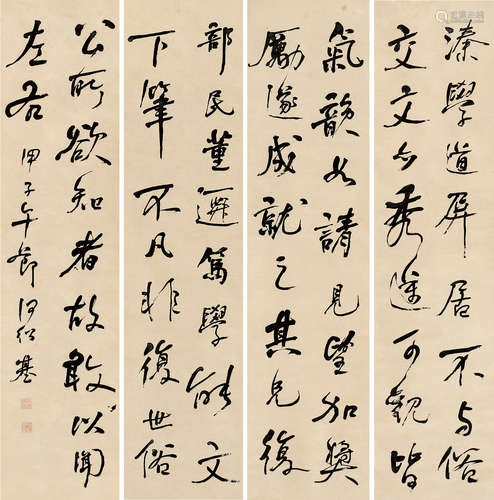 溱學道屏居不与俗
交文亦秀逸可觀皆
氣韻如請見望加獎
勵遂成就之其兄復
部民董遷篤學能文
下筆不凡非復世俗
公所欲知者故敢以聞
左右
甲子午節何紹基